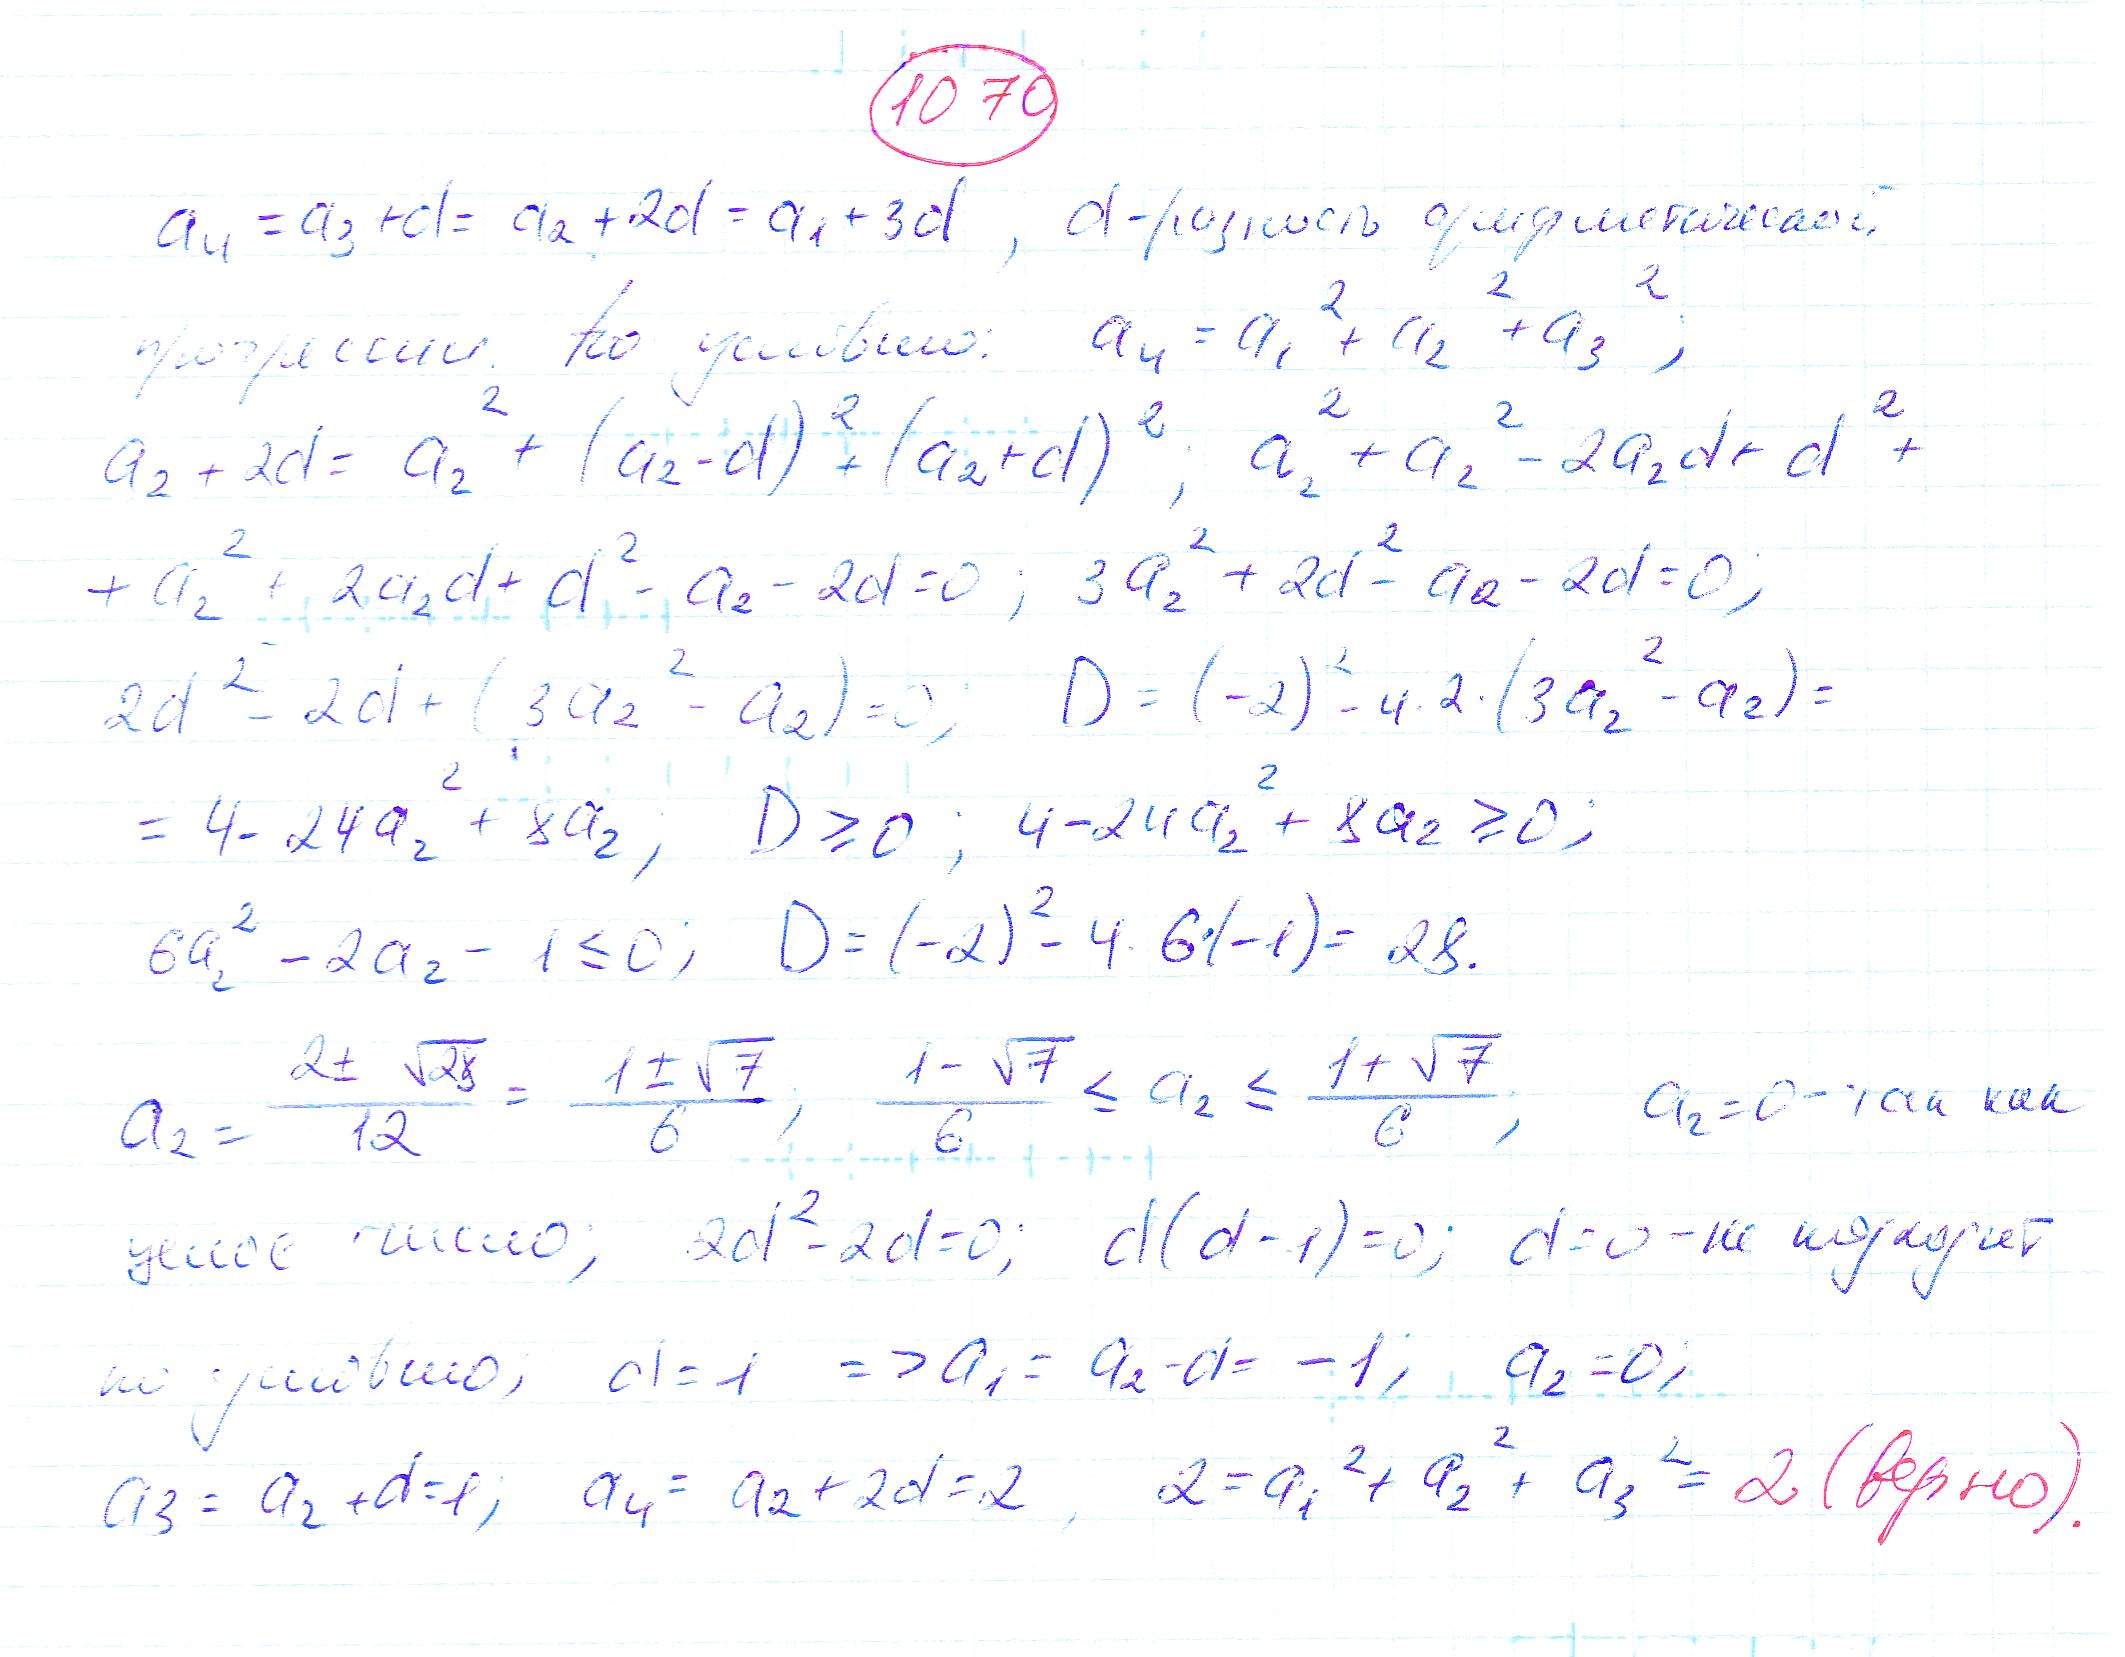 1070
a₄ = a₃ + d = a₂ + 2d = a₁ + 3d , d - разность арифметической
прогрессии. По условию: a₄ = a₁² + a₂² + a₃² ;
a₂ + 2d = a₂² + (a₂ - d)² + (a₂ + d)² ; a₂² + a₂² - 2a₂d + d² +
+ a₂² + 2a₂d + d² - a₂ - 2d = 0 ; 3a₂² + 2d² - a₂ - 2d = 0 ;
2d² - 2d + (3a₂² - a₂) = 0 ; D = (-2)² - 4·2·(3a₂² - a₂) =
= 4 - 24a₂² + 8a₂ ; D ≥ 0 ; 4 - 24a₂² + 8a₂ ≥ 0 ;
6a₂² - 2a₂ - 1 ≤ 0 ; D = (-2)² - 4·6·(-1) = 28.
a₂ = (2 ± √28)/12 = (1 ± √7)/6 ; (1 - √7)/6 ≤ a₂ ≤ (1 + √7)/6 ; a₂ = 0 - так как
целое число ; 2d² - 2d = 0 ; d(d - 1) = 0 ; d = 0 - не подходит
по условию ; d = 1 => a₁ = a₂ - d = -1 ; a₂ = 0 ;
a₃ = a₂ + d = 1 ; a₄ = a₂ + 2d = 2 , 2 = a₁² + a₂² + a₃² = 2 (верно).